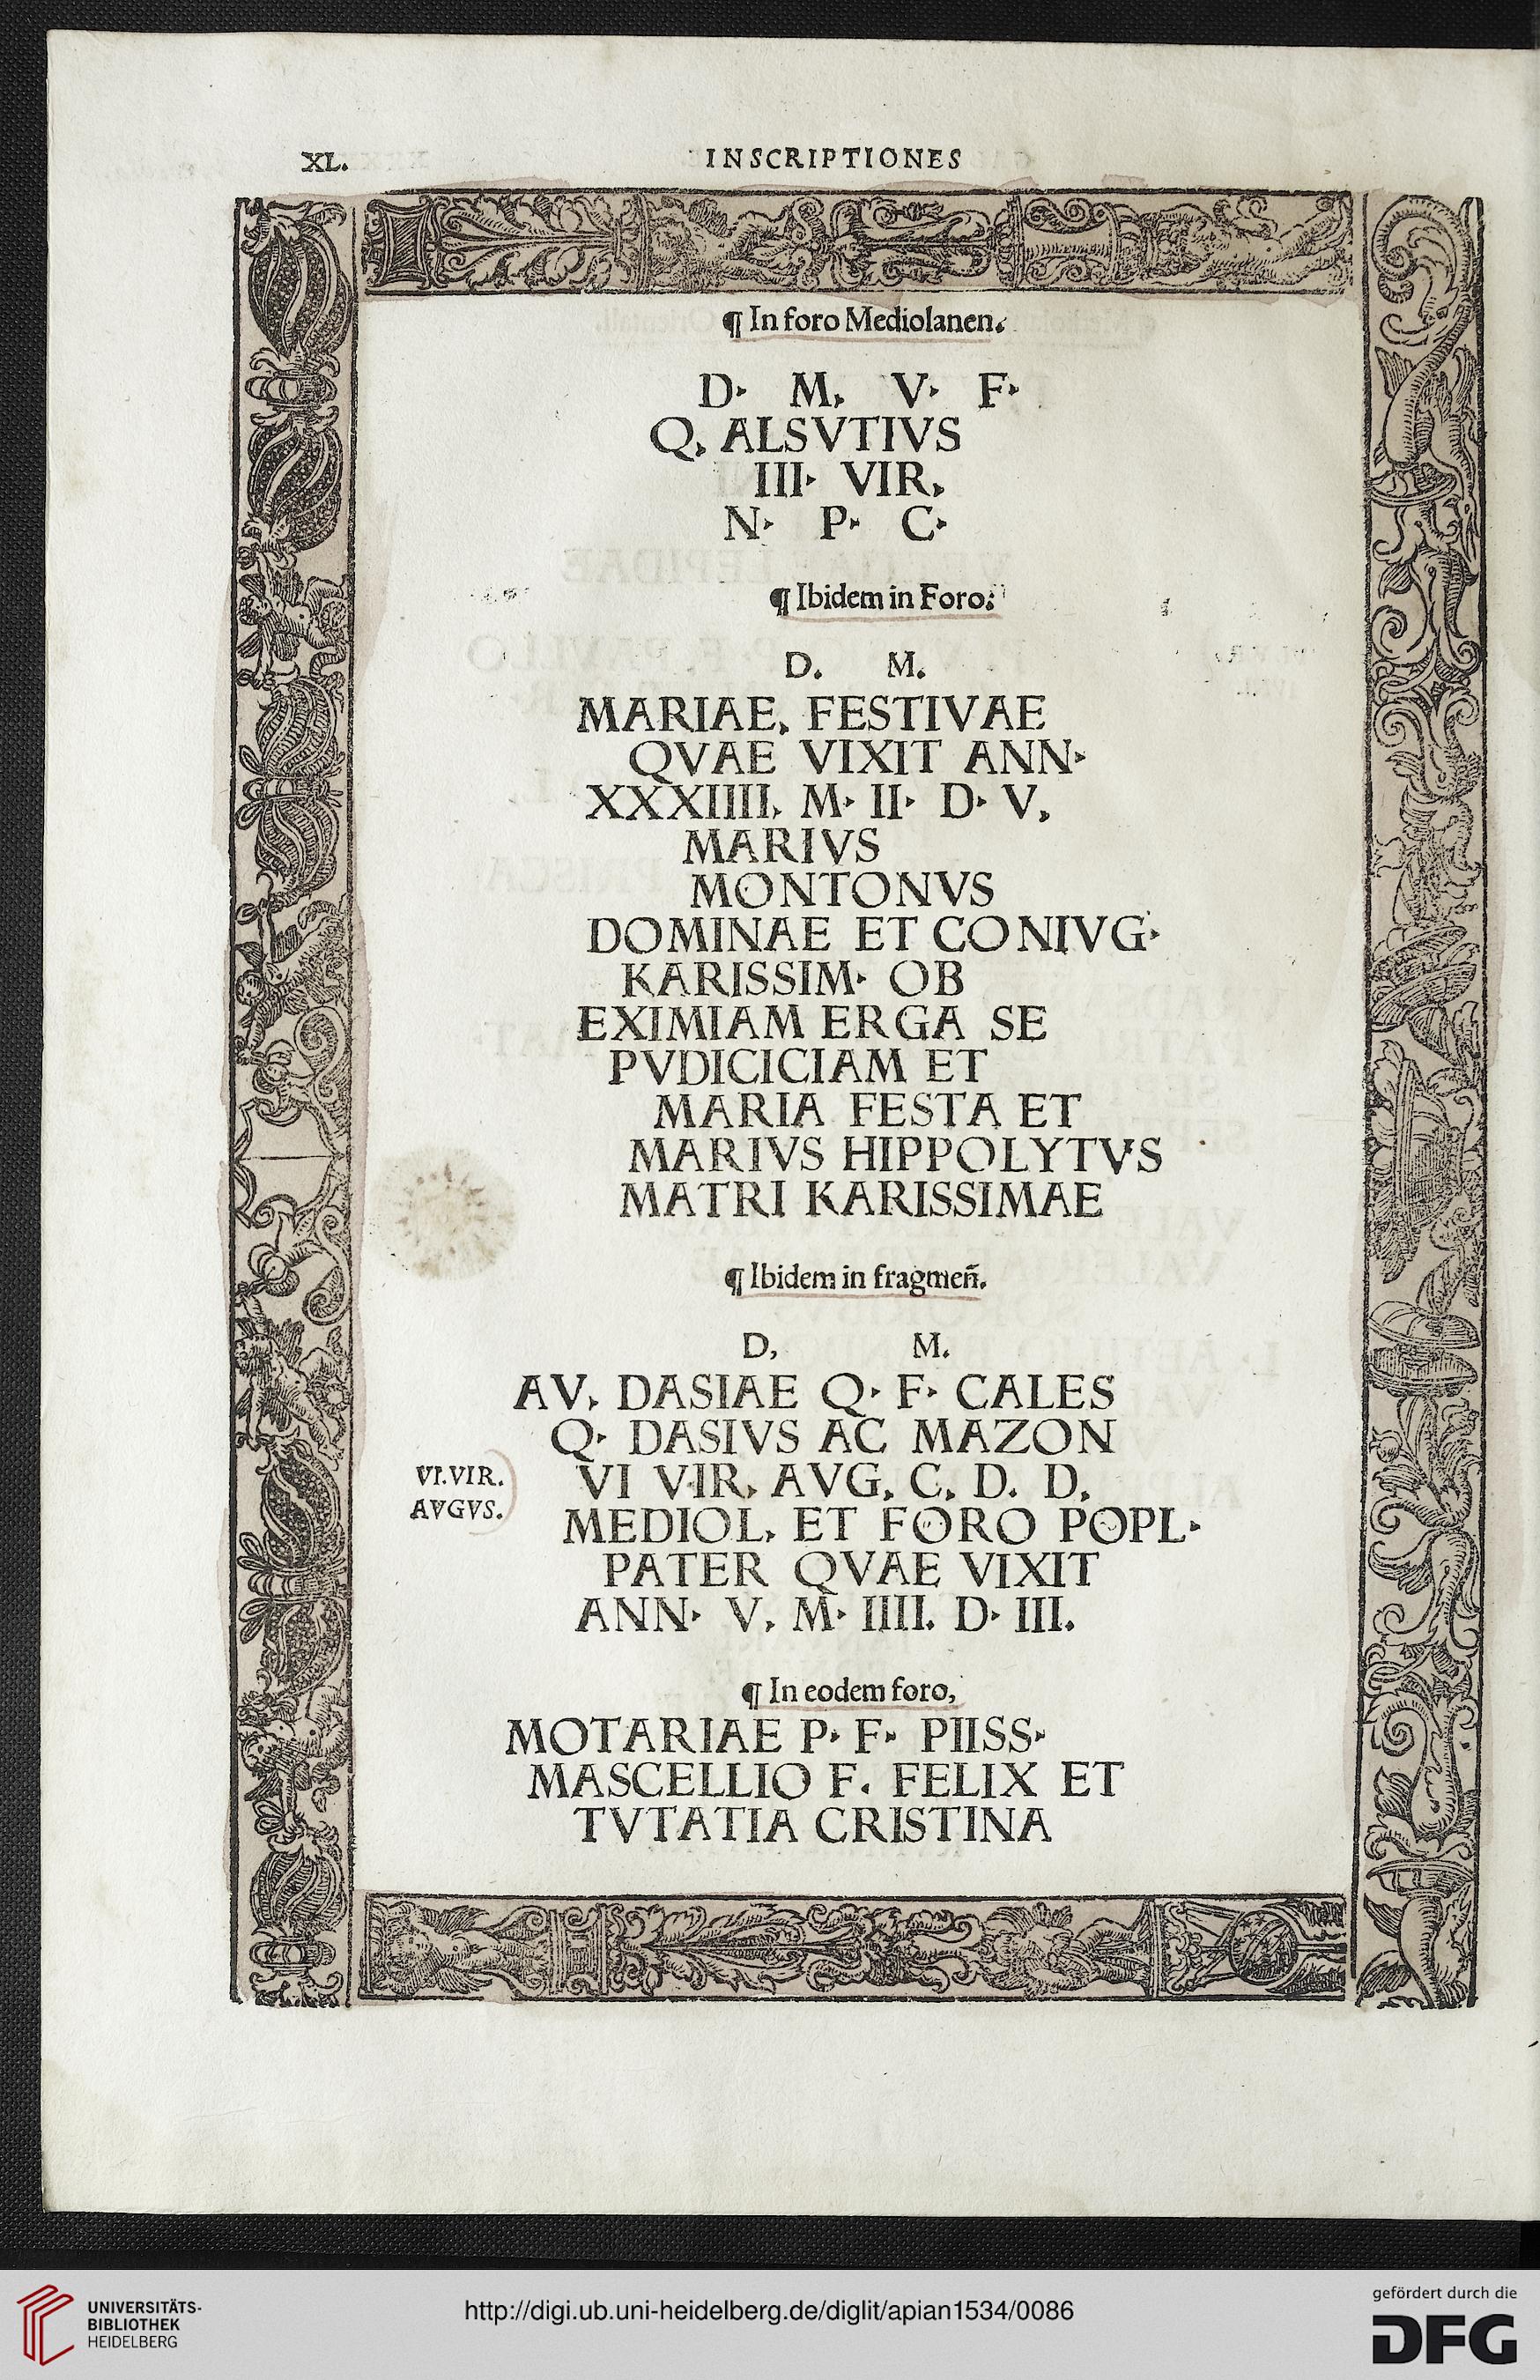 XL.
INSCRIPTIONES
¶ In foro Mediolanen.
D. M. V. F.
Q. ALSVTIVS
III. VIR.
N. P. C.
¶ Ibidem in Foro.
D. M.
MARIAE. FESTIVAE
QVAE VIXIT ANN.
XXXIIII. M. II. D. V.
MARIVS
MONTONVS
DOMINAE ET CONIVG.
KARISSIM. OB
EXIMIAM ERGA SE
PVDICICIAM ET
MARIA FESTA ET
MARIVS HIPPOLYTVS
MATRI KARISSIMAE
¶ Ibidem in fragmen̄.
D, M.
AV. DASIAE Q. F. CALES
Q. DASIVS AC MAZON
VI.VIR.
AVGVS.
VI VIR. AVG. C. D. D.
MEDIOL. ET FORO POPL.
PATER QVAE VIXIT
ANN. V. M. IIII. D. III.
¶ In eodem foro,
MOTARIAE P. F. PIISS.
MASCELLIO F. FELIX ET
TVTATIA CRISTINA
UNIVERSITÄTS-
BIBLIOTHEK
HEIDELBERG
http://digi.ub.uni-heidelberg.de/diglit/apian1534/0086
gefördert durch die
DFG